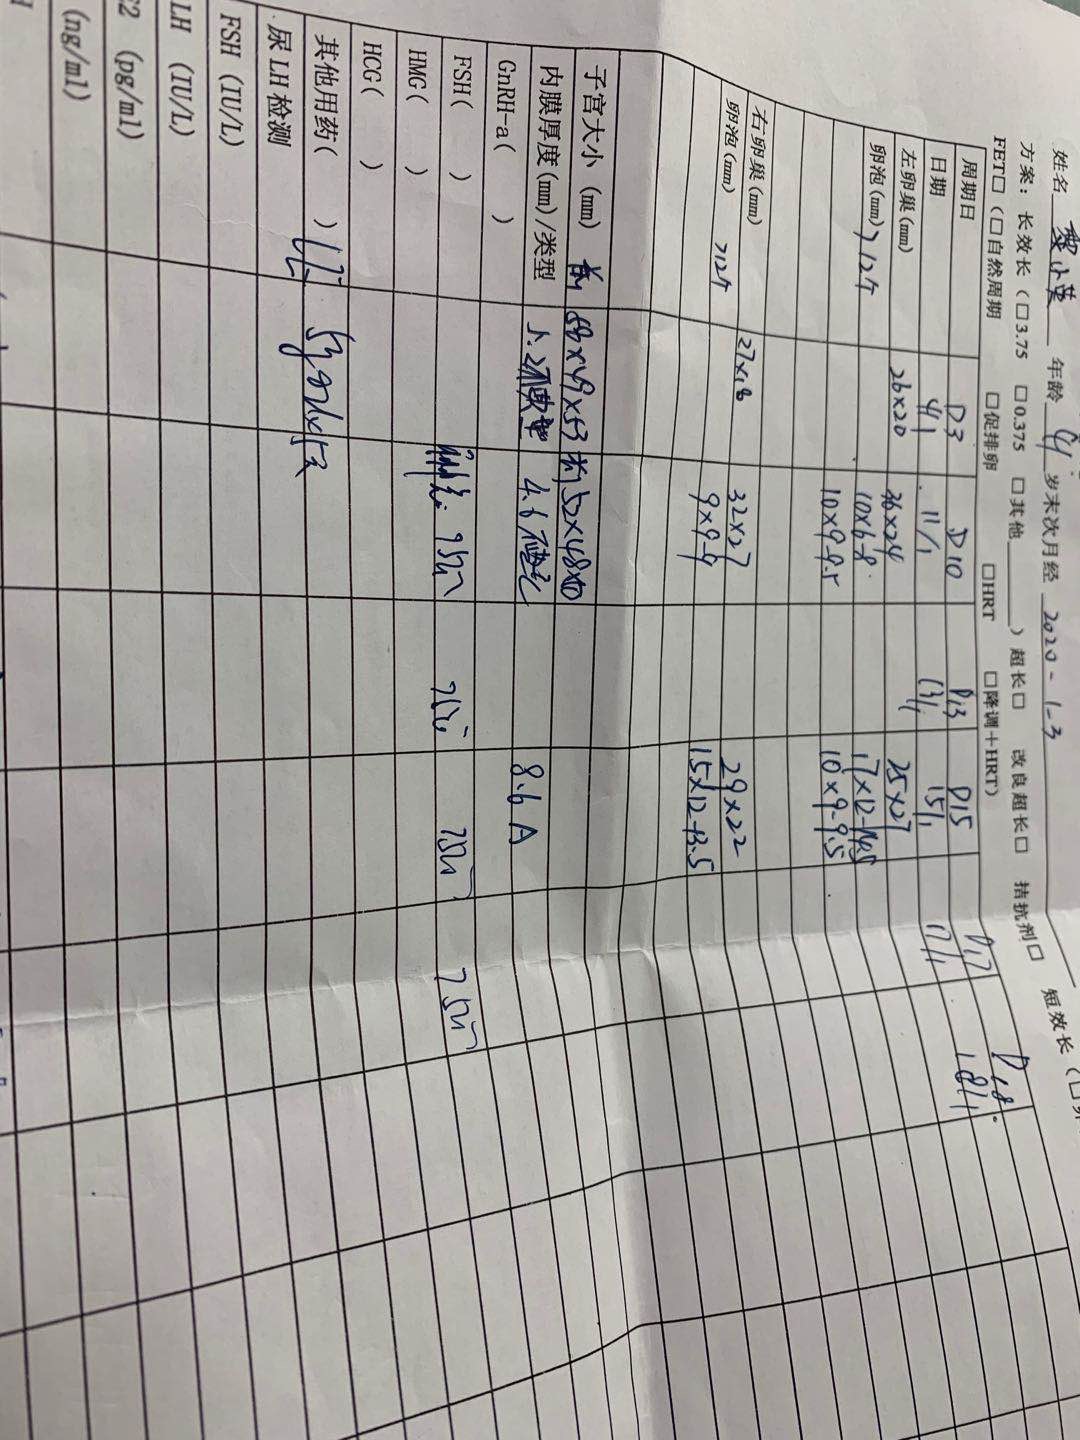 姓名 黎小英 年龄 41 岁末次月经 2020-1-3
方案：长效长（□3.75 □0.375 □其他 ）超长□ 改良超长□ 拮抗剂□ 短效长（□
FET□（□自然周期 □促排卵 □HRT □降调+HRT）
周期日 D3 D10 D13 D15 D17 D18
日期 4/1 11/1 13/1 15/1 17/1 18/1
左卵巢(mm) 26×20 36×24 25×27
卵泡(mm) >12个 10×6-8 17×12-14.5
10×9-9.5 10×9-9.5
右卵巢(mm) 27×18 32×27 29×22
卵泡(mm) >12个 9×9-9 15×12-13.5
子宫大小 (mm) 58×49×53 52×48×40
内膜厚度(mm)/类型 5.2 4.6 8.6 A
GnRH-a( )
FSH( ) 75u 75u 75u 75u
HMG( )
HCG( )
其他用药( )
尿LH检测
FSH (IU/L)
LH (IU/L)
E2 (pg/ml)
(ng/ml)